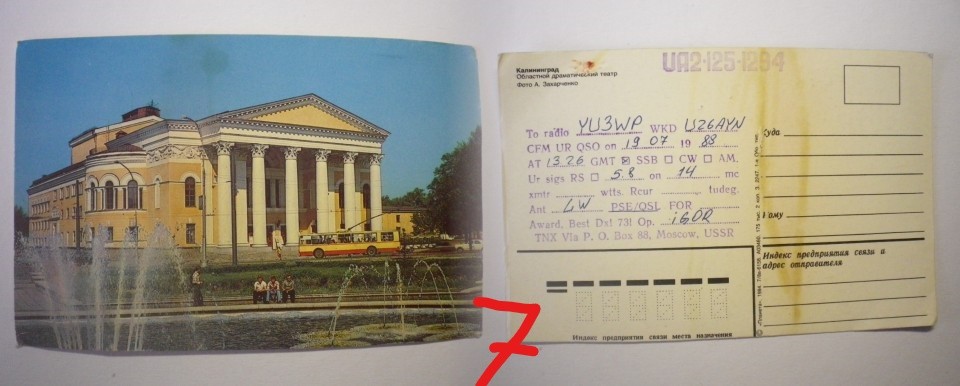 Калининград
Областной драматический театр
Фото А. Захарченко
UA2-125-1284
To radio YU3WP WKD UZ6AYN
CFM UR QSO on 19 07 1988
AT 13.26 GMT ☒ SSB ☐ CW ☐ AM.
Ur sigs RS ☐ 5.8 on 14 mc
xmtr wtts. Rcur tudeg.
Ant LW PSE/QSL FOR
Award, Best Dx! 73! Op. iGOR
TNX Via P. O. Box 88, Moscow, USSR
Куда
Кому
Индекс предприятия связи и
адрес отправителя
Индекс предприятия связи места назначения
7